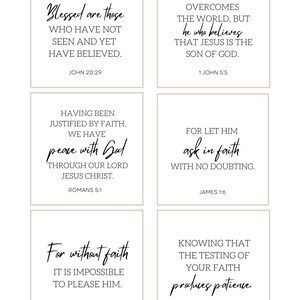 Blessed are those
WHO HAVE NOT
SEEN AND YET
HAVE BELIEVED.
JOHN 20:29
OVERCOMES
THE WORLD, BUT
he who believes
THAT JESUS IS THE
SON OF GOD.
1 JOHN 5:5
HAVING BEEN
JUSTIFIED BY FAITH,
WE HAVE
peace with God
THROUGH OUR LORD
JESUS CHRIST.
ROMANS 5:1
FOR LET HIM
ask in faith
WITH NO DOUBTING.
JAMES 1:6
For without faith
IT IS IMPOSSIBLE
TO PLEASE HIM.
KNOWING THAT
THE TESTING OF
YOUR FAITH
produces patience.